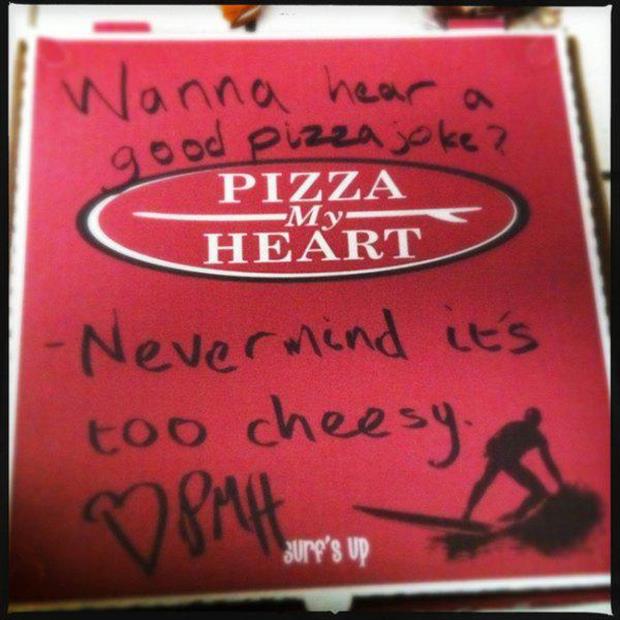 Wanna hear a
good pizza joke?
PIZZA
My
HEART
- Nevermind it's
too cheesy.
♡ PMH
SURF'S UP